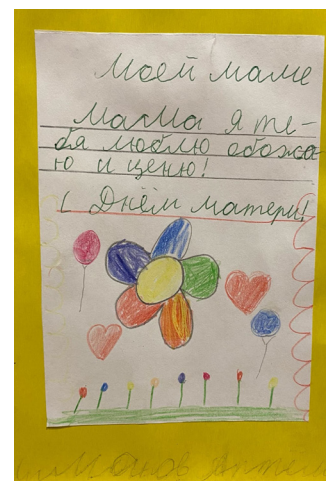 Моей маме
Мама я те-
бя люблю обожа
ю и ценю!
С Днём матери!
Артём